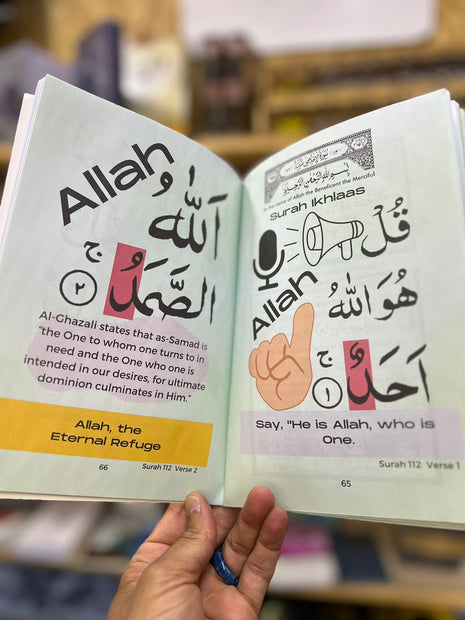 بِسْمِ اللّٰهِ الرَّحْمٰنِ الرَّحِيْمِ
In the name of Allah the Beneficent the Merciful
Surah Ikhlaas
قُلْ
Allah
هُوَ اللّٰهُ
اَحَدٌ ج ١
Say, "He is Allah, who is
One.
Surah 112 Verse 1
65
Allah
اَللّٰهُ
الصَّمَدُ ج ٢
Al-Ghazali states that as-Samad is
"the One to whom one turns to in
need and the One who one is
intended in our desires, for ultimate
dominion culminates in Him."
Allah, the
Eternal Refuge
66
Surah 112 Verse 2